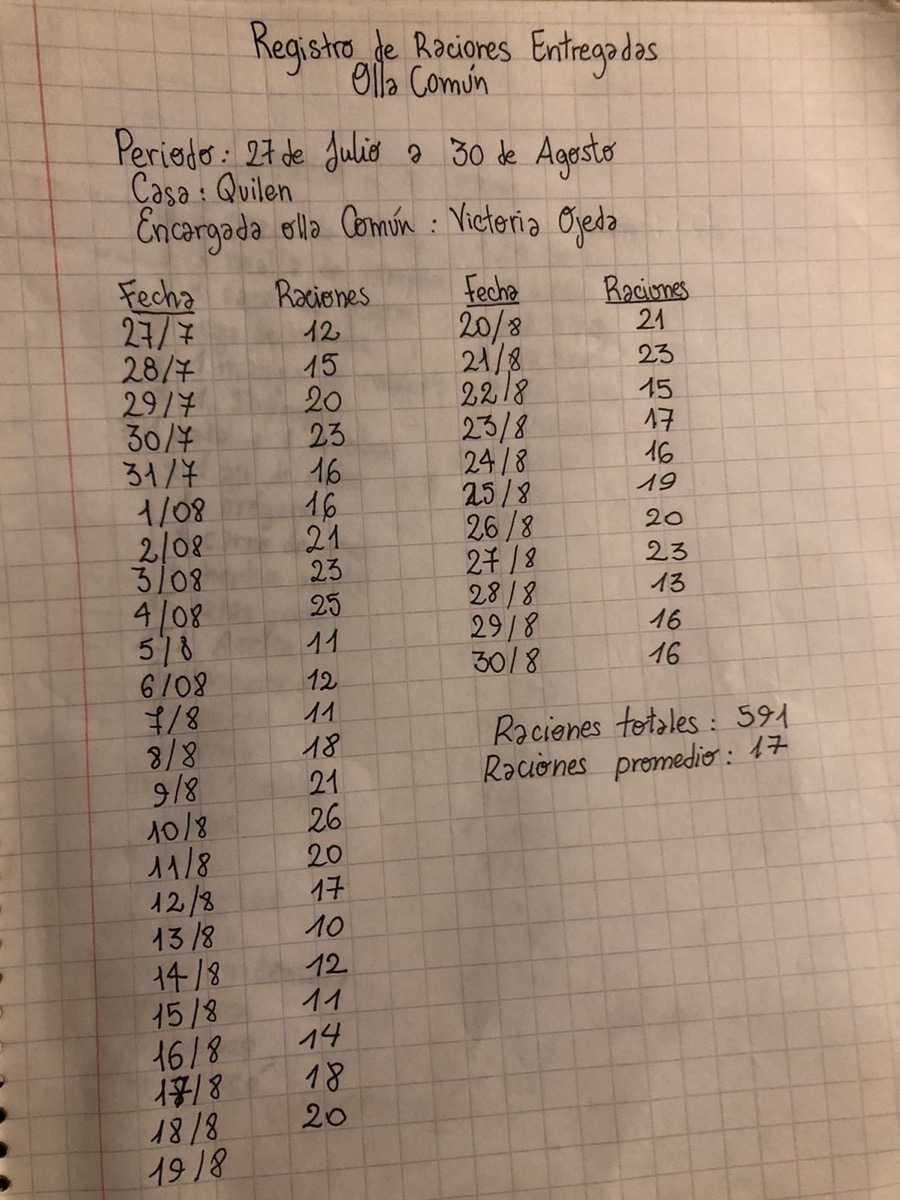 Registro de Raciones Entregadas
Olla Común
Periodo: 27 de Julio a 30 de Agosto
Casa: Quilen
Encargada olla Común: Victoria Ojeda
Fecha Raciones
27/7 12
28/7 15
29/7 20
30/7 23
31/7 16
1/08 16
2/08 21
3/08 23
4/08 25
5/8 11
6/08 12
7/8 11
8/8 18
9/8 21
10/8 26
11/8 20
12/8 17
13/8 10
14/8 12
15/8 11
16/8 14
17/8 18
18/8 20
19/8
Fecha Raciones
20/8 21
21/8 23
22/8 15
23/8 17
24/8 16
25/8 19
26/8 20
27/8 23
28/8 13
29/8 16
30/8 16
Raciones totales: 591
Raciones promedio: 17